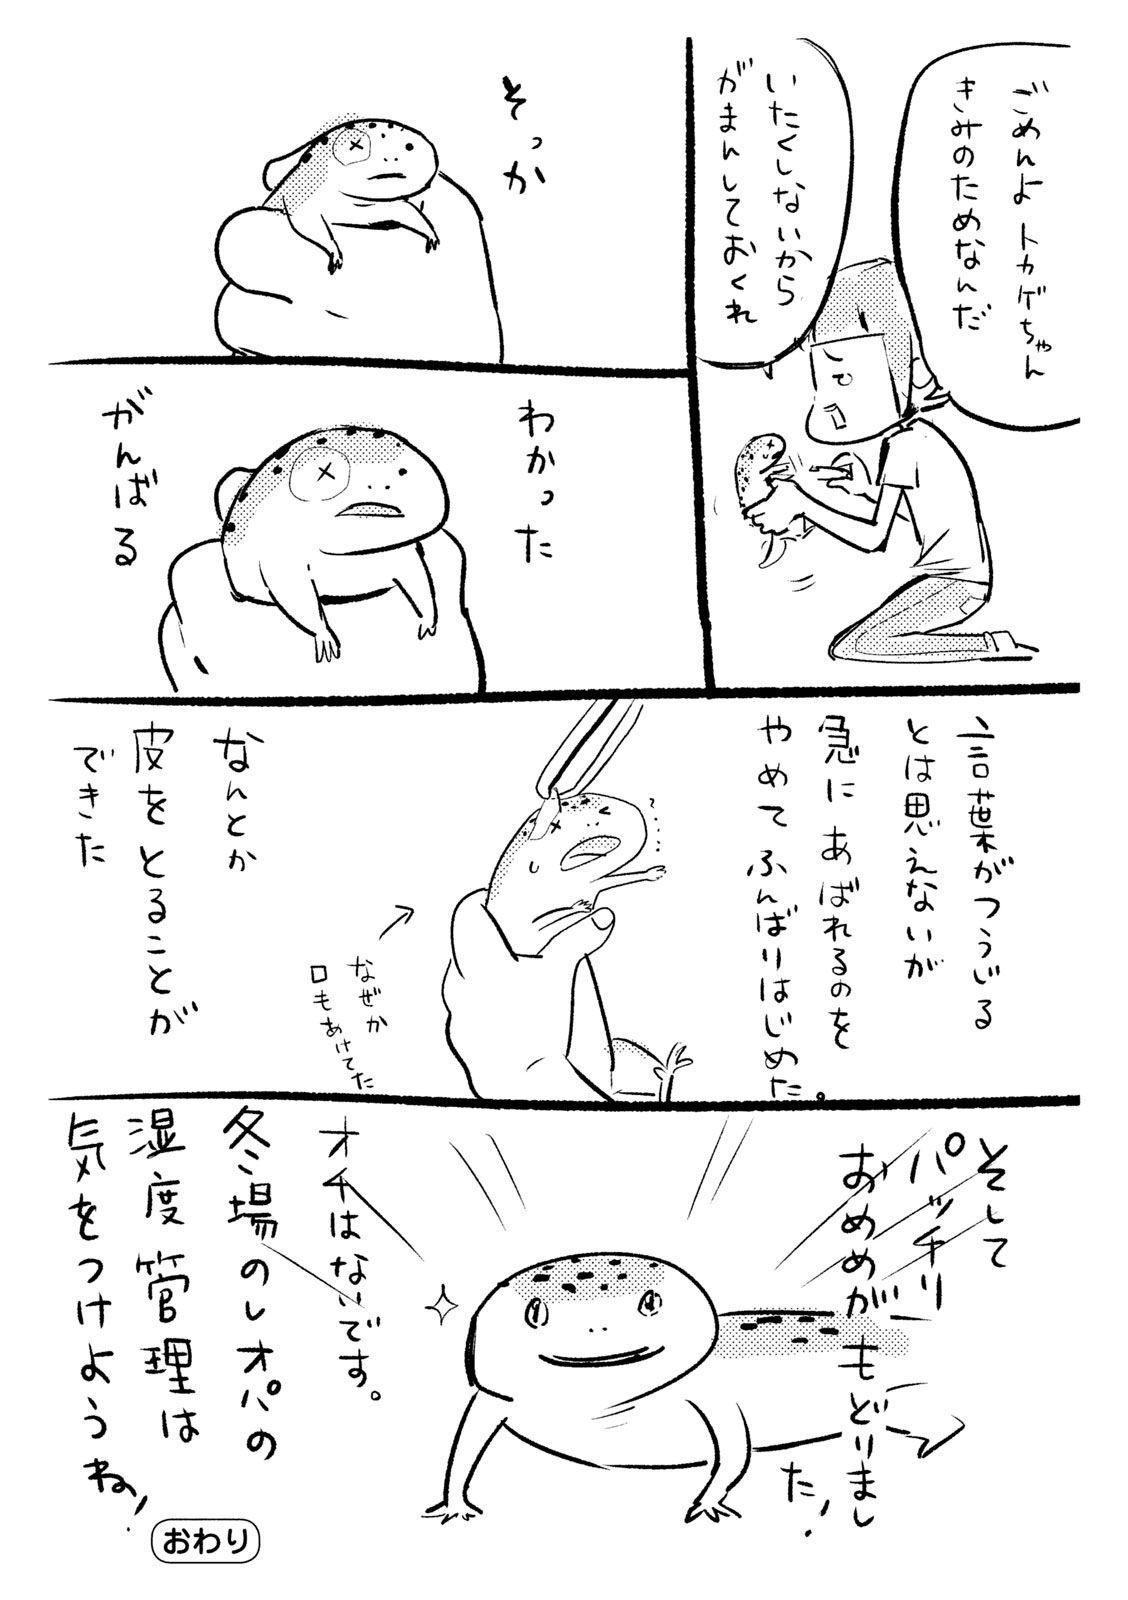 ごめんよ トカゲちゃん
きみのためなんだ
いたくしないから
がまんしておくれ
そっか
わかった
がんばる
言葉がつうじる
とは思えないが
急に あばれるのを
やめて ふんばりはじめた。
なぜか
口もあけてた
なんとか
皮を とることが
できた
そして
パッチリ
おめめが もどりまし
た!
オチはないです。
冬場のレオパの
湿度管理は
気をつけようね!
おわり